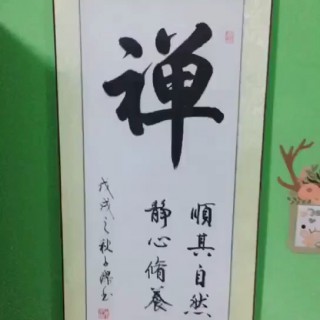 禅
順其自然
静心脩養
戊戌之秋